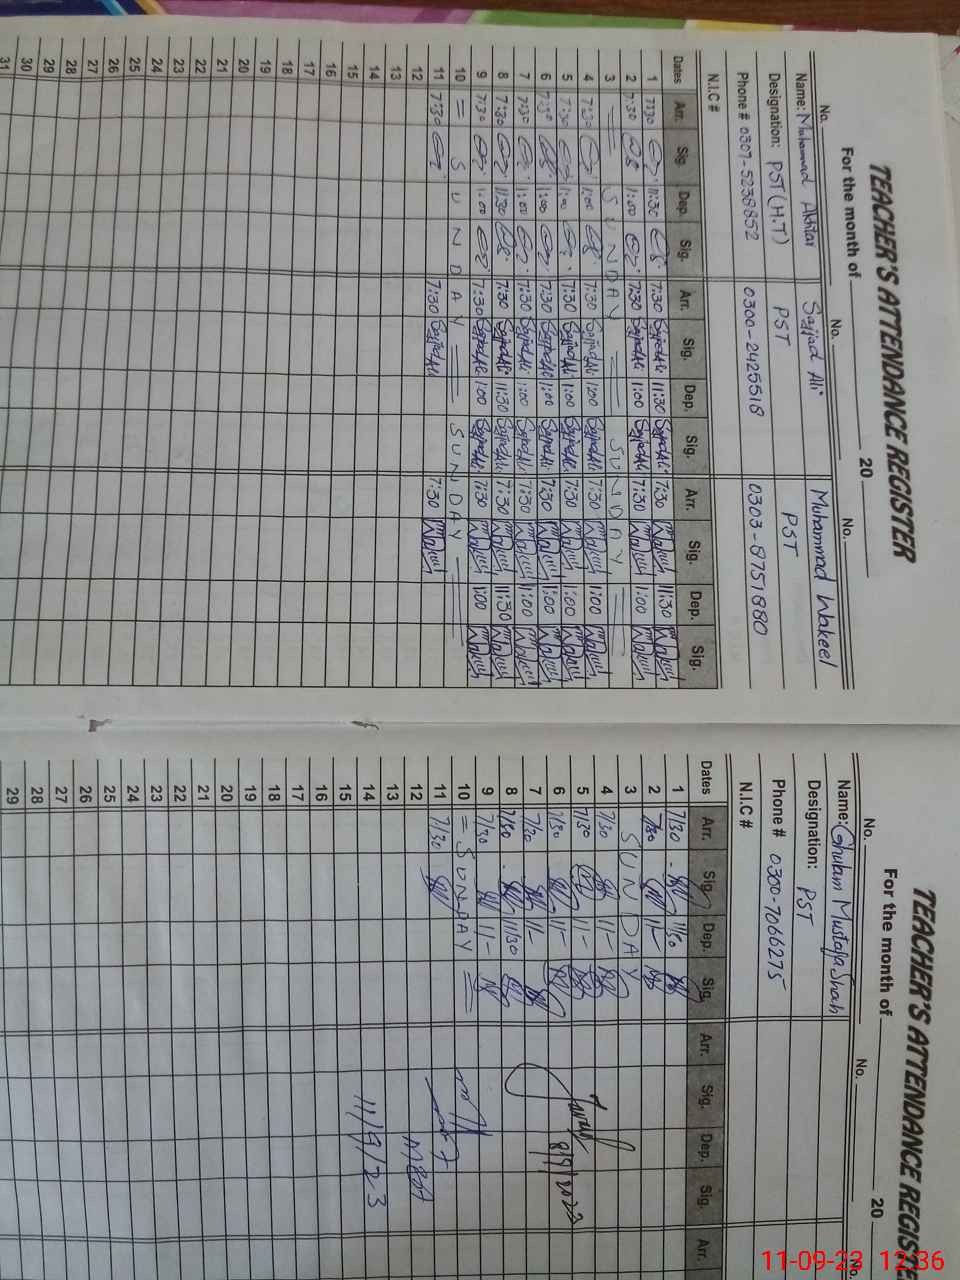 TEACHER'S ATTENDANCE REGISTER
For the month of 20
No. No. No.
Name: Muhammad Akhtar Sajjad Ali Muhammad Wakeel
Designation: PST (H.T) PST PST
Phone # 0307-5238852 0300-2425518 0303-8751880
N.I.C #
Dates Arr. Sig. Dep. Sig. Arr. Sig. Dep. Sig. Arr. Sig. Dep. Sig.
1 7:30 11:30 7:30 SajjadAli 11:30 SajjadAli 7:30 Wakeel 11:30 Wakeel
2 7:30 1:00 7:30 SajjadAli 1:00 SajjadAli 7:30 Wakeel 1:00 Wakeel
3 = SUNDAY = SUNDAY =
4 7:30 1:00 7:30 SajjadAli 1:00 SajjadAli 7:30 Wakeel 1:00 Wakeel
5 7:30 1:00 7:30 SajjadAli 1:00 SajjadAli 7:30 Wakeel 1:00 Wakeel
6 7:30 1:00 7:30 SajjadAli 1:00 SajjadAli 7:30 Wakeel 1:00 Wakeel
7 7:30 1:00 7:30 SajjadAli 1:00 SajjadAli 7:30 Wakeel 1:00 Wakeel
8 7:30 11:30 7:30 SajjadAli 11:30 SajjadAli 7:30 Wakeel 11:30 Wakeel
9 7:30 1:00 7:30 SajjadAli 1:00 SajjadAli 7:30 Wakeel 1:00 Wakeel
10 = SUNDAY = SUNDAY =
11 7:30 7:30 SajjadAli 7:30 Wakeel
12
13
14
15
16
17
18
19
20
21
22
23
24
25
26
27
28
29
30
31
TEACHER'S ATTENDANCE REGISTE
For the month of 20
No. No. No.
Name: Ghulam Mustafa Shah
Designation: PST
Phone # 0300-7066275
N.I.C #
Dates Arr. Sig. Dep. Sig. Arr. Sig. Dep. Sig. Arr.
1 7/30 11/30
2 7/30 11-
3 SUNDAY
4 7/30 11-
5 7/30 11-
6 7/30 11-
7 7/30 11-
8 7/30 11/30
9 7/30 11-
10 = SUNDAY =
11 7/30
12
13
14
15
16
17
18
19
20
21
22
23
24
25
26
27
28
29
8/9/2023
MEA
11/9/23
11-09-23 12:36